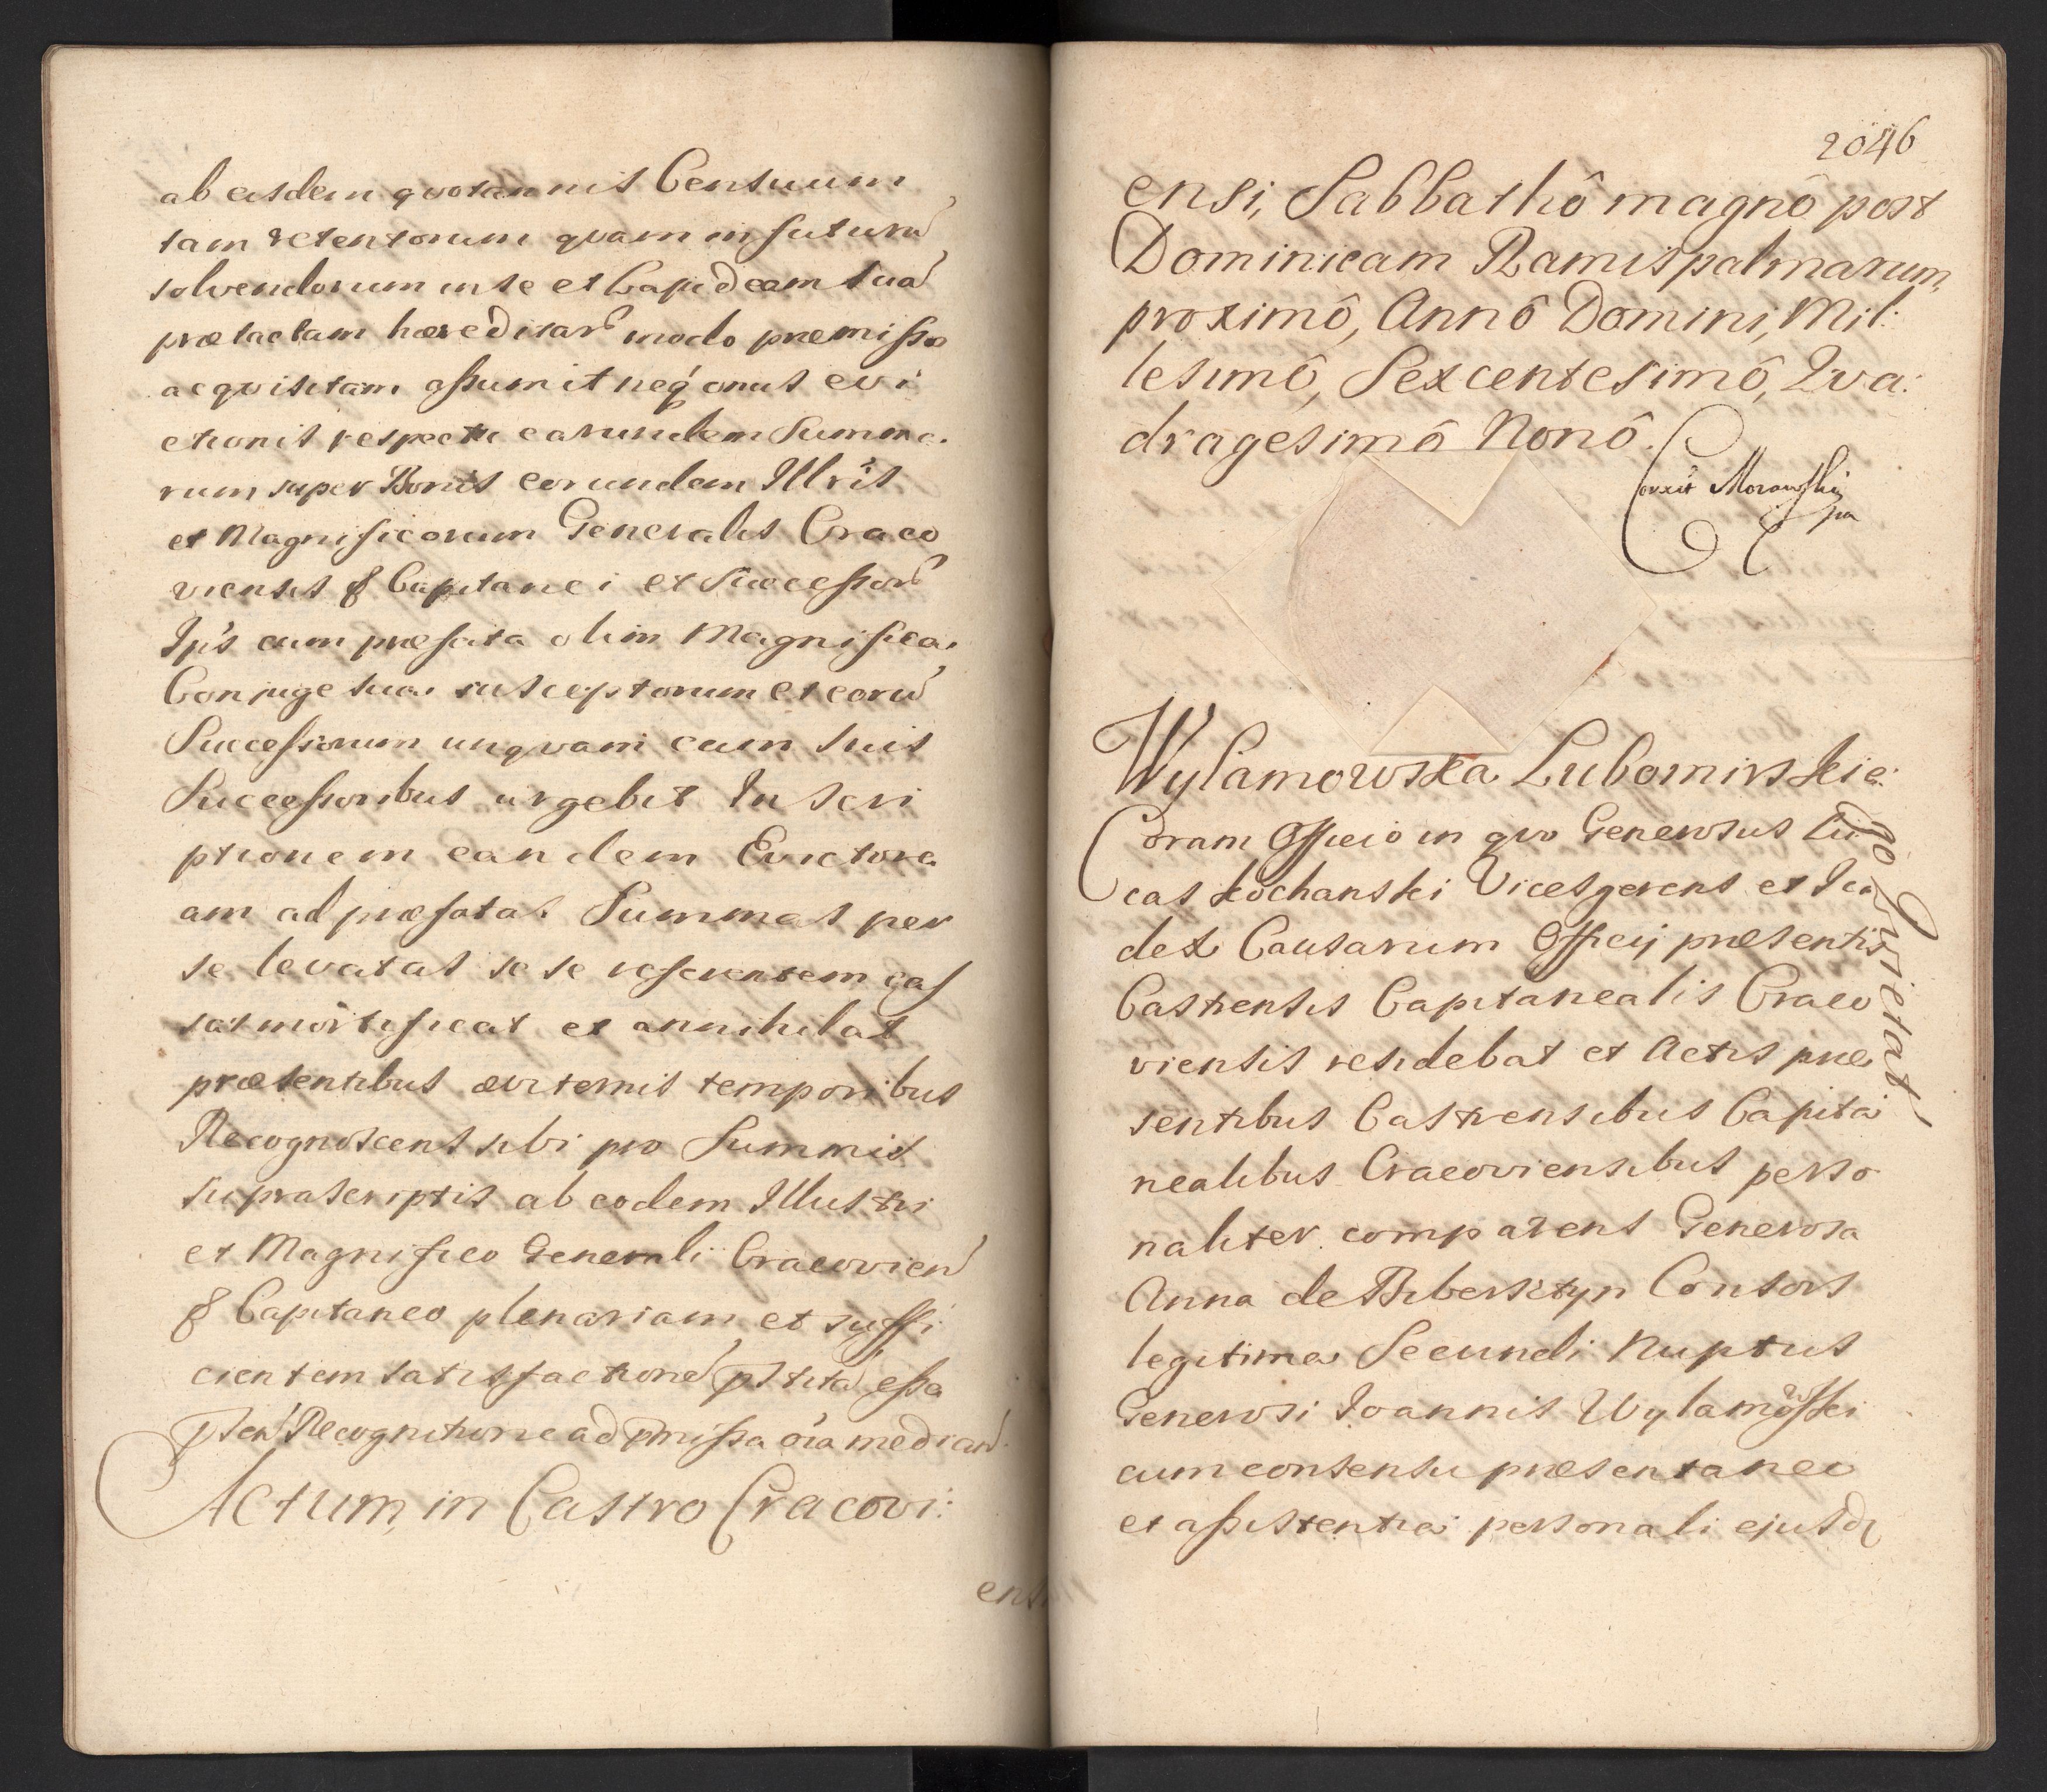 ab eisdem quotannis Censuum
tam retentorum quam in futurũ
solvendorum in se et Lapideam suã
prætactam hæreditar modo præmisso
acquisitam assumit neq onus evi
ctionis respectu earundem Summa
rum super Bonis eorundem Illris
et Magnificorum Generalis Craco
viensis & Capitanei et Successorũ
Ips cum præfata olim Magnifica
Conjuge sua susceptorum et eorũ
Successorum unquam cum suis
Successoribus urgebit Inscri
ptionem eandem Evictore
am ad præfatas Summas per
se levatas sese referentem cas
sat mortificat et annihilat
præsentibus æviternis temporibus
Recognoscens sibi pro Summis
suprascriptis ab eodem Illustri
et Magnifico Generali Cracovien
& Capitaneo plenariam et suffi
cientem satisfactionẽ esse
Recognitione ad pmissa oia median
Actum in Castro Cracovi:
ensi
2046
ensi, Sabbathô magnô post
Dominicam Ramispalmarum
proximô, Annô Domini, Mil:
lesimô, Sexcentesimô, Qva:
dragesimô Nonô.
Corxit Morawski
mpa
Wylamowska Lubomirskie:
go Qvietat
Coram Officio in quo Generosus Lu
cas Kochanski Vicesgerens et Iu
dex Causarum Officij præsentis
Castrensis Capitanealis Craco
viensis residebat et Actis præ
sentibus Castrensibus Capita
nealibus Cracoviensibus perso
naliter comparens Generosa
Anna de Bibersztyn Consors
legitima Secundi Nuptus
Generosi Joannis Wylamowski
cum consensu præsentaneo
et assistentia personali ejusd